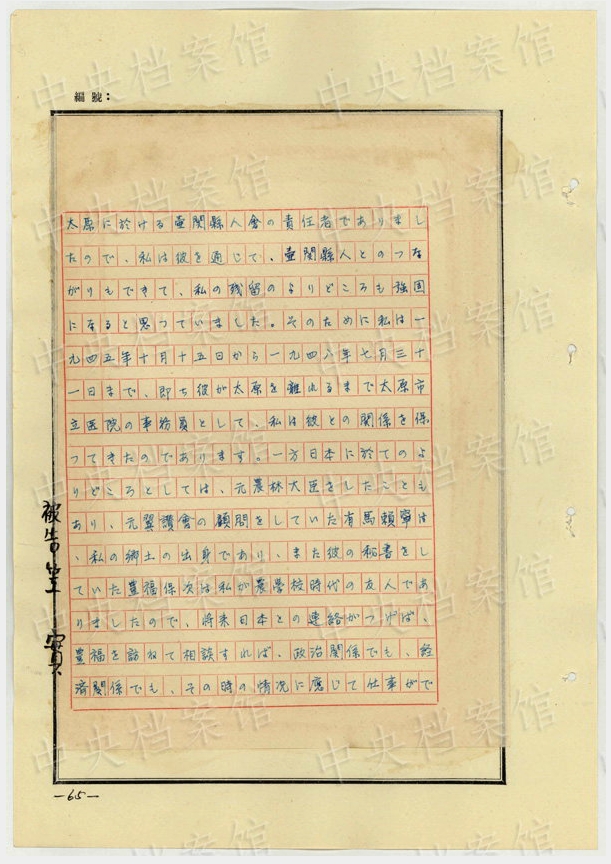 中央档案馆
編號：
太原に於ける壺関縣人會の責任者でありまし
たので、私は彼を通じて、壺関縣人とのつな
がりもできて、私の残留のよりどころも強固
になると思つていました。そのために私は一
九四五年十月十五日から一九四八年七月三十
一日まで、即ち彼が太原を離れるまで太原市
立医院の事務員として、私は彼との関係を保
つてきたのであります。一方日本に於てのよ
りどころとしては、元農林大臣をしたことも
あり、元翼讃會の顧問をしていた有馬頼寧は
、私の郷土の出身であり、また彼の秘書をし
ていた豊福保次は私が農學校時代の友人であ
りましたので、将来日本との連絡がつけば、
豊福を訪ねて相談すれば、政治関係でも、経
済関係でも、その時の情况に應じて仕事がで
被告笠 實
—65—